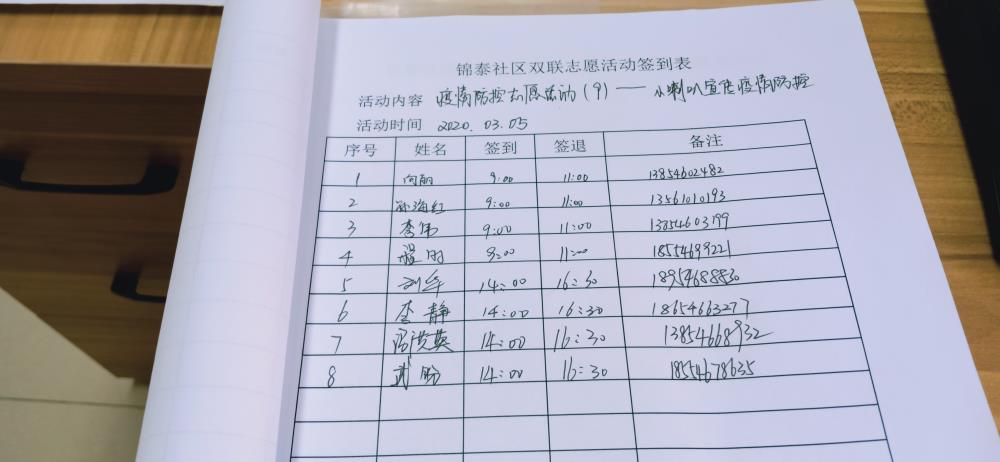 锦泰社区双联志愿活动签到表
活动内容 疫情防控志愿活动(9)——小喇叭宣传疫情防控
活动时间 2020.03.05
序号 姓名 签到 签退 备注
1 向丽 9:00 11:00 13854602482
2 孙海红 9:00 11:00 13561010193
3 李伟 9:00 11:00 13854603799
4 程明 9:00 11:00 18554699221
5 刘军 14:00 16:30 18954688530
6 李静 14:00 16:30 18654663277
7 冯洪英 14:00 16:30 13854668932
8 武盼 14:00 16:30 18554678635